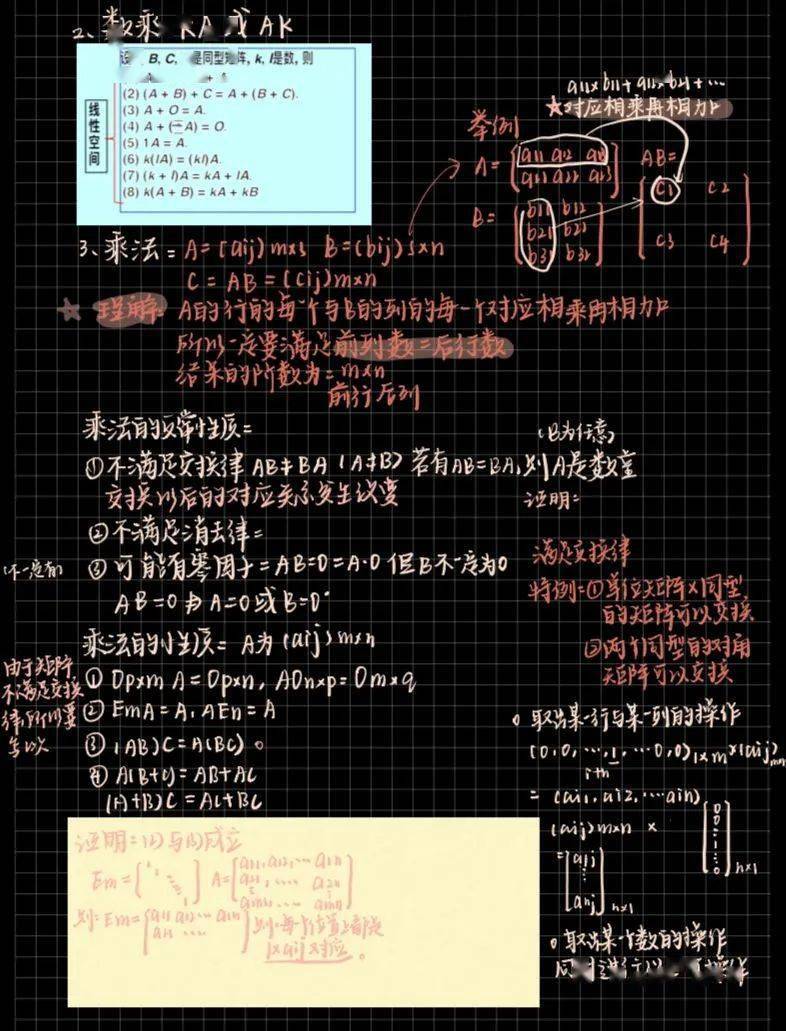 2、数乘 kA 或 AK
B, C, 是同型矩阵, k, l是数, 则
(2) (A + B) + C = A + (B + C).
(3) A + O = A.
(4) A + (−A) = O.
(5) 1A = A.
(6) k(lA) = (kl)A.
(7) (k + l)A = kA + lA.
(8) k(A + B) = kA + kB
线性空间
a11×b11+a12×b21+…
★对应相乘再相加
举例
A= a11 a12 a13
a21 a22 a23
AB=
C1 C2
C3 C4
B= b11 b12
b21 b22
b31 b32
3、乘法= A=(aij)m×s B=(bij)s×n
C=AB=(Cij)m×n
☆ 理解: A的行的每个与B的列的每一个对应相乘再相加
所以一定要满足前列数=后行数
结果的阶数为=m×n
前行后列
乘法的反常性质=
(B为任意)
①不满足交换律 AB≠BA (A≠B) 若有AB=BA,则A是数量
交换以后的对应关系发生改变
证明=
②不满足消去律=
(不一定有)
③可能有零因子=AB=0=A·0 但B不一定为0
AB=0 ⇏ A=0或B=0
满足交换律
特例=①单位矩阵×同型
的矩阵可以交换
②两个同型的对角
矩阵可以交换
乘法的小性质= A为(aij)m×n
由于矩阵
不满足交换
律,所以要
① Op×m A=Op×n, AOn×p=Om×q
② EmA=A, AEn=A
③ (AB)C=A(BC)。
④ A(B+C)=AB+AC
(A+B)C=AC+BC
。取出某一行与某一列的操作
(0,0,…,1,…0,0)1×m×(aij)mn
i+n
=(ai1,ai2,…ain)
(aij)m×n ×
0
0
⋮
1
⋮
0
n×1
= a1j
⋮
anj
n×1
。取出某一个数的操作
证明=(2)与(3)成立
Em= 1 A= a11,a12,… a1n
a21,…. a2n
am1,… amn
则=Em= a11 a12… a1n
a21 …
则=每个位置上都是
1×aij对应。